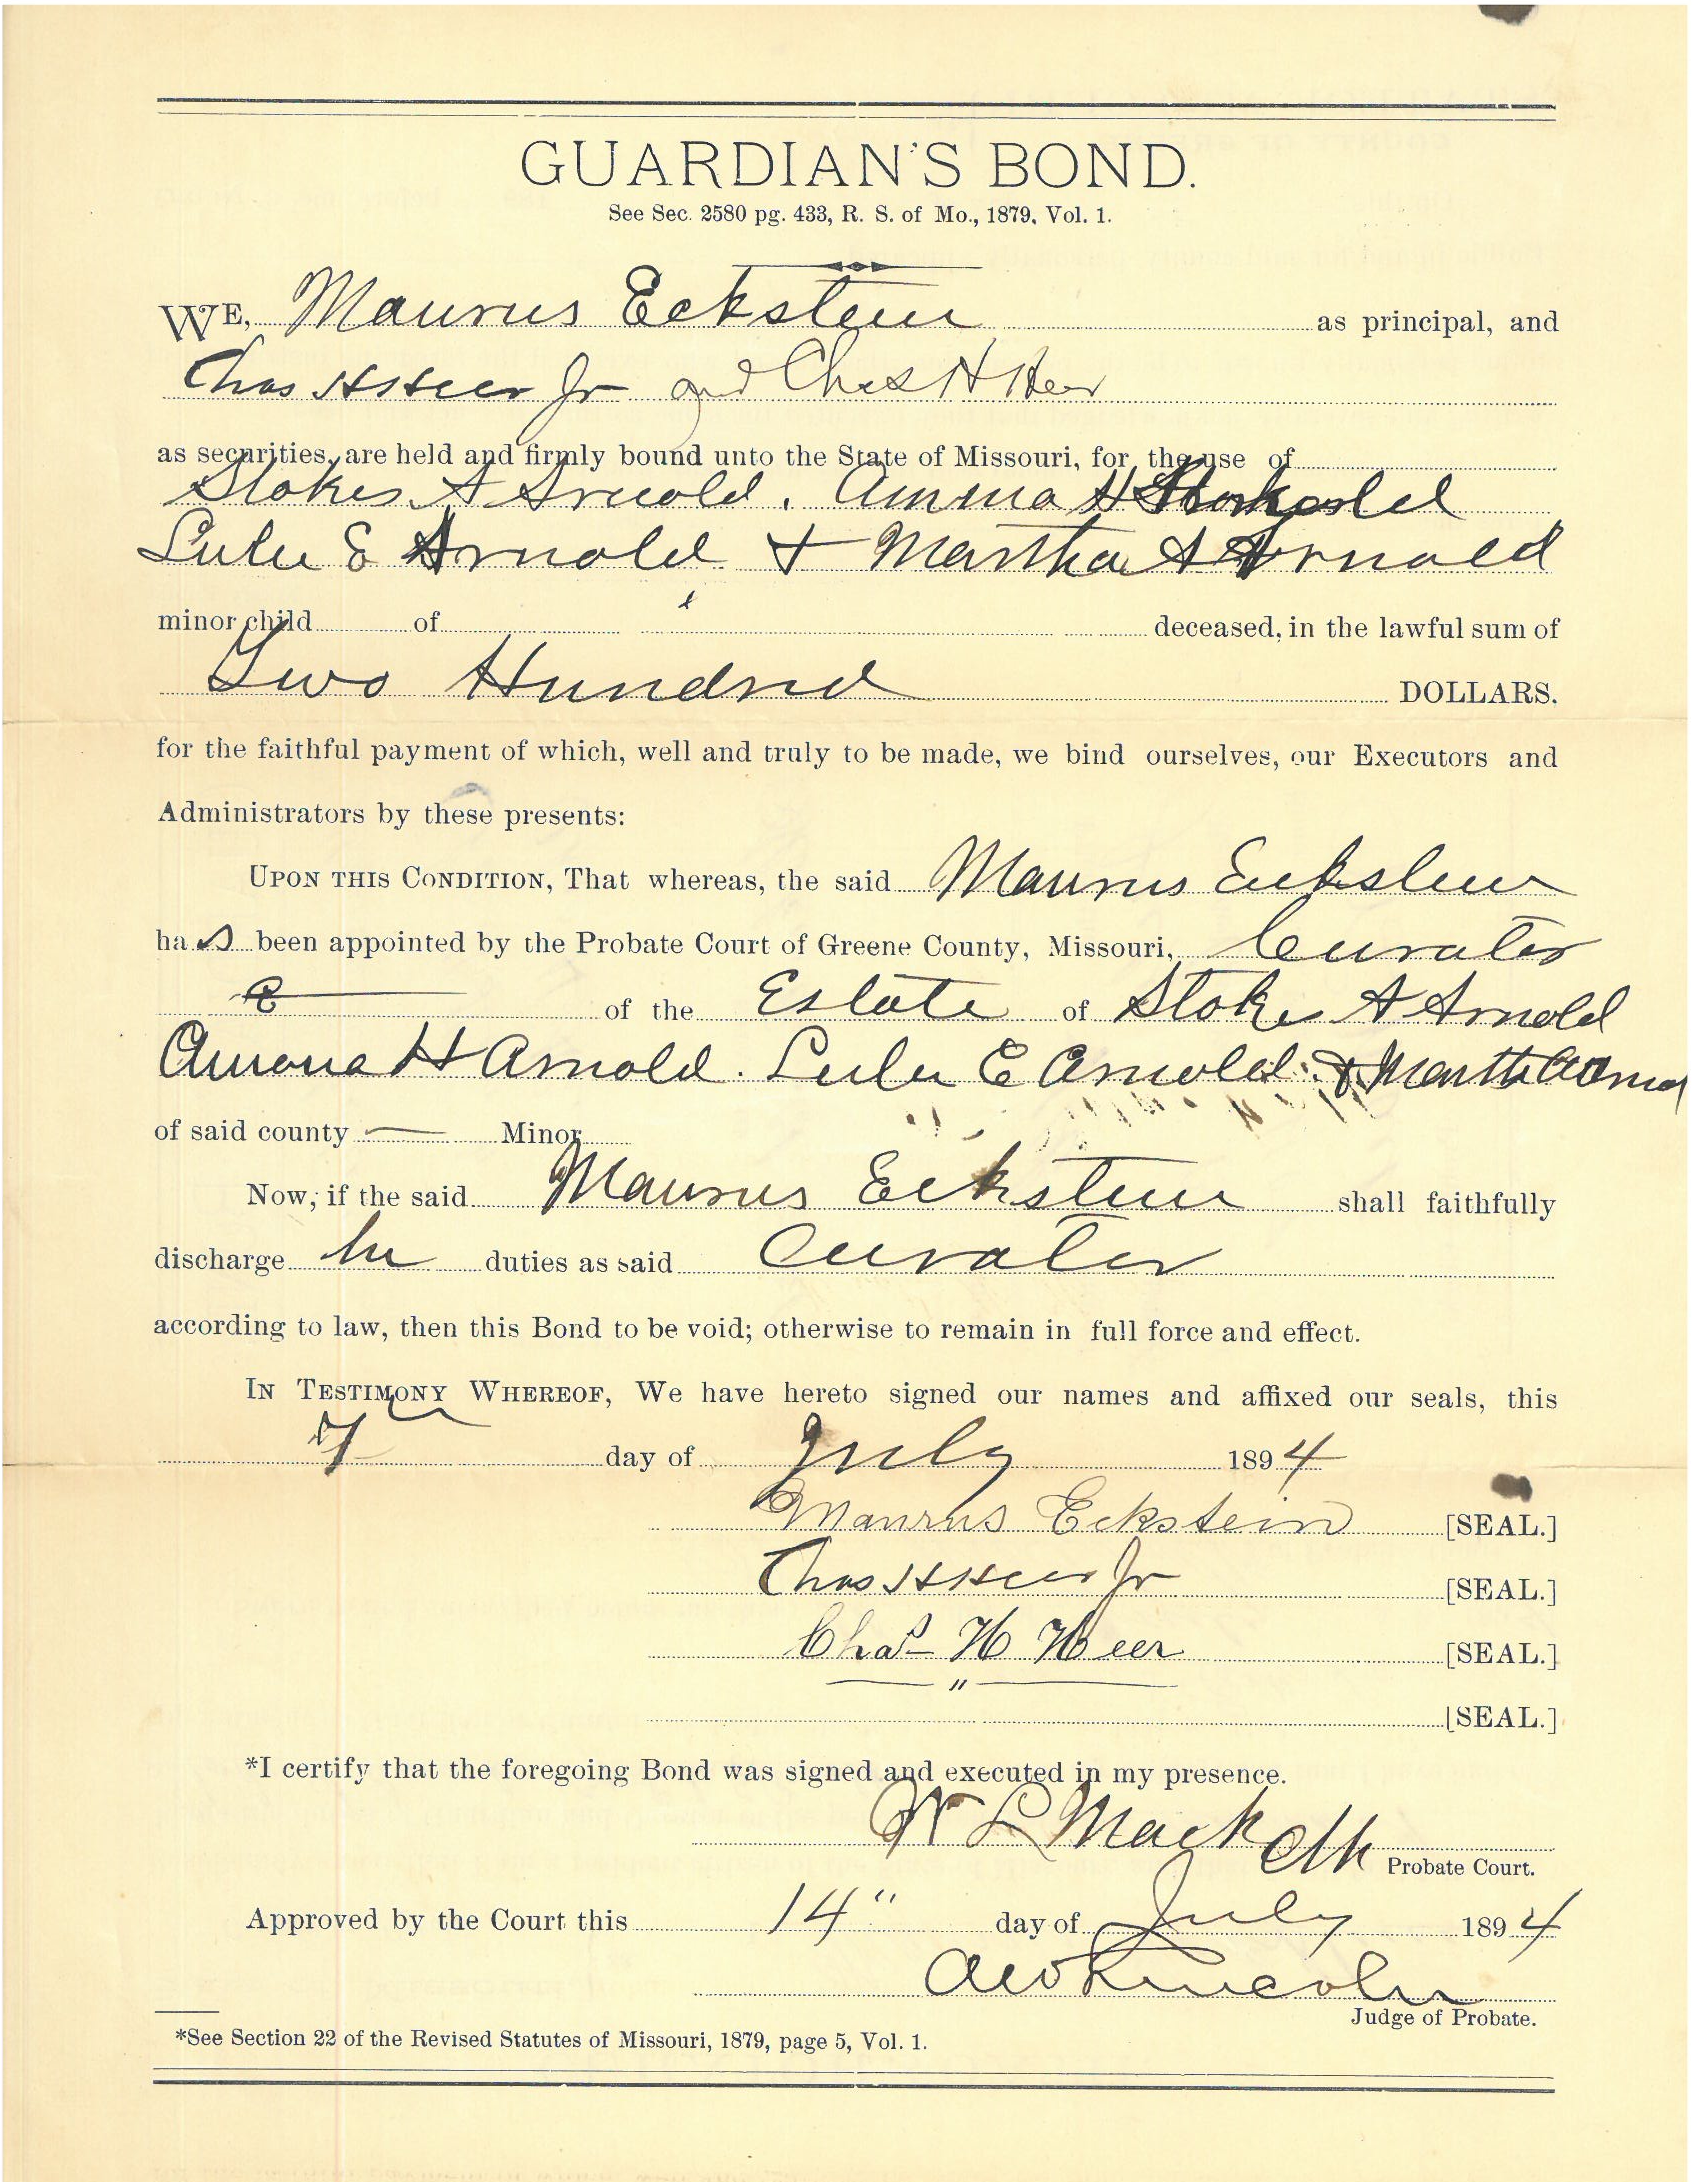 GUARDIAN'S BOND.
See Sec. 2580 pg. 433, R. S. of Mo., 1879, Vol. 1.
WE, Maurus Eckstein as principal, and
Chas H Heer Jr and Chas H Heer
as securities, are held and firmly bound unto the State of Missouri, for the use of
Stokes A Arnold. H
Lulu E Arnold + Martha A Arnold
minor child of deceased, in the lawful sum of
Two Hundred DOLLARS.
for the faithful payment of which, well and truly to be made, we bind ourselves, our Executors and
Administrators by these presents:
UPON THIS CONDITION, That whereas, the said Maurus Eckstein
has been appointed by the Probate Court of Greene County, Missouri, Curator
of the Estate of Stokes A Arnold
H Arnold. Lulu E Arnold. & Martha A
of said county — Minor
Now, if the said Maurus Eckstein shall faithfully
discharge his duties as said Curator
according to law, then this Bond to be void; otherwise to remain in full force and effect.
IN TESTIMONY WHEREOF, We have hereto signed our names and affixed our seals, this
7th day of July 1894
Maurus Eckstein [SEAL.]
Chas H Heer Jr [SEAL.]
Chas H Heer [SEAL.]
"
[SEAL.]
*I certify that the foregoing Bond was signed and executed in my presence.
W L Mack Clk Probate Court.
Approved by the Court this 14" day of July 1894
Lincoln
Judge of Probate.
*See Section 22 of the Revised Statutes of Missouri, 1879, page 5, Vol. 1.